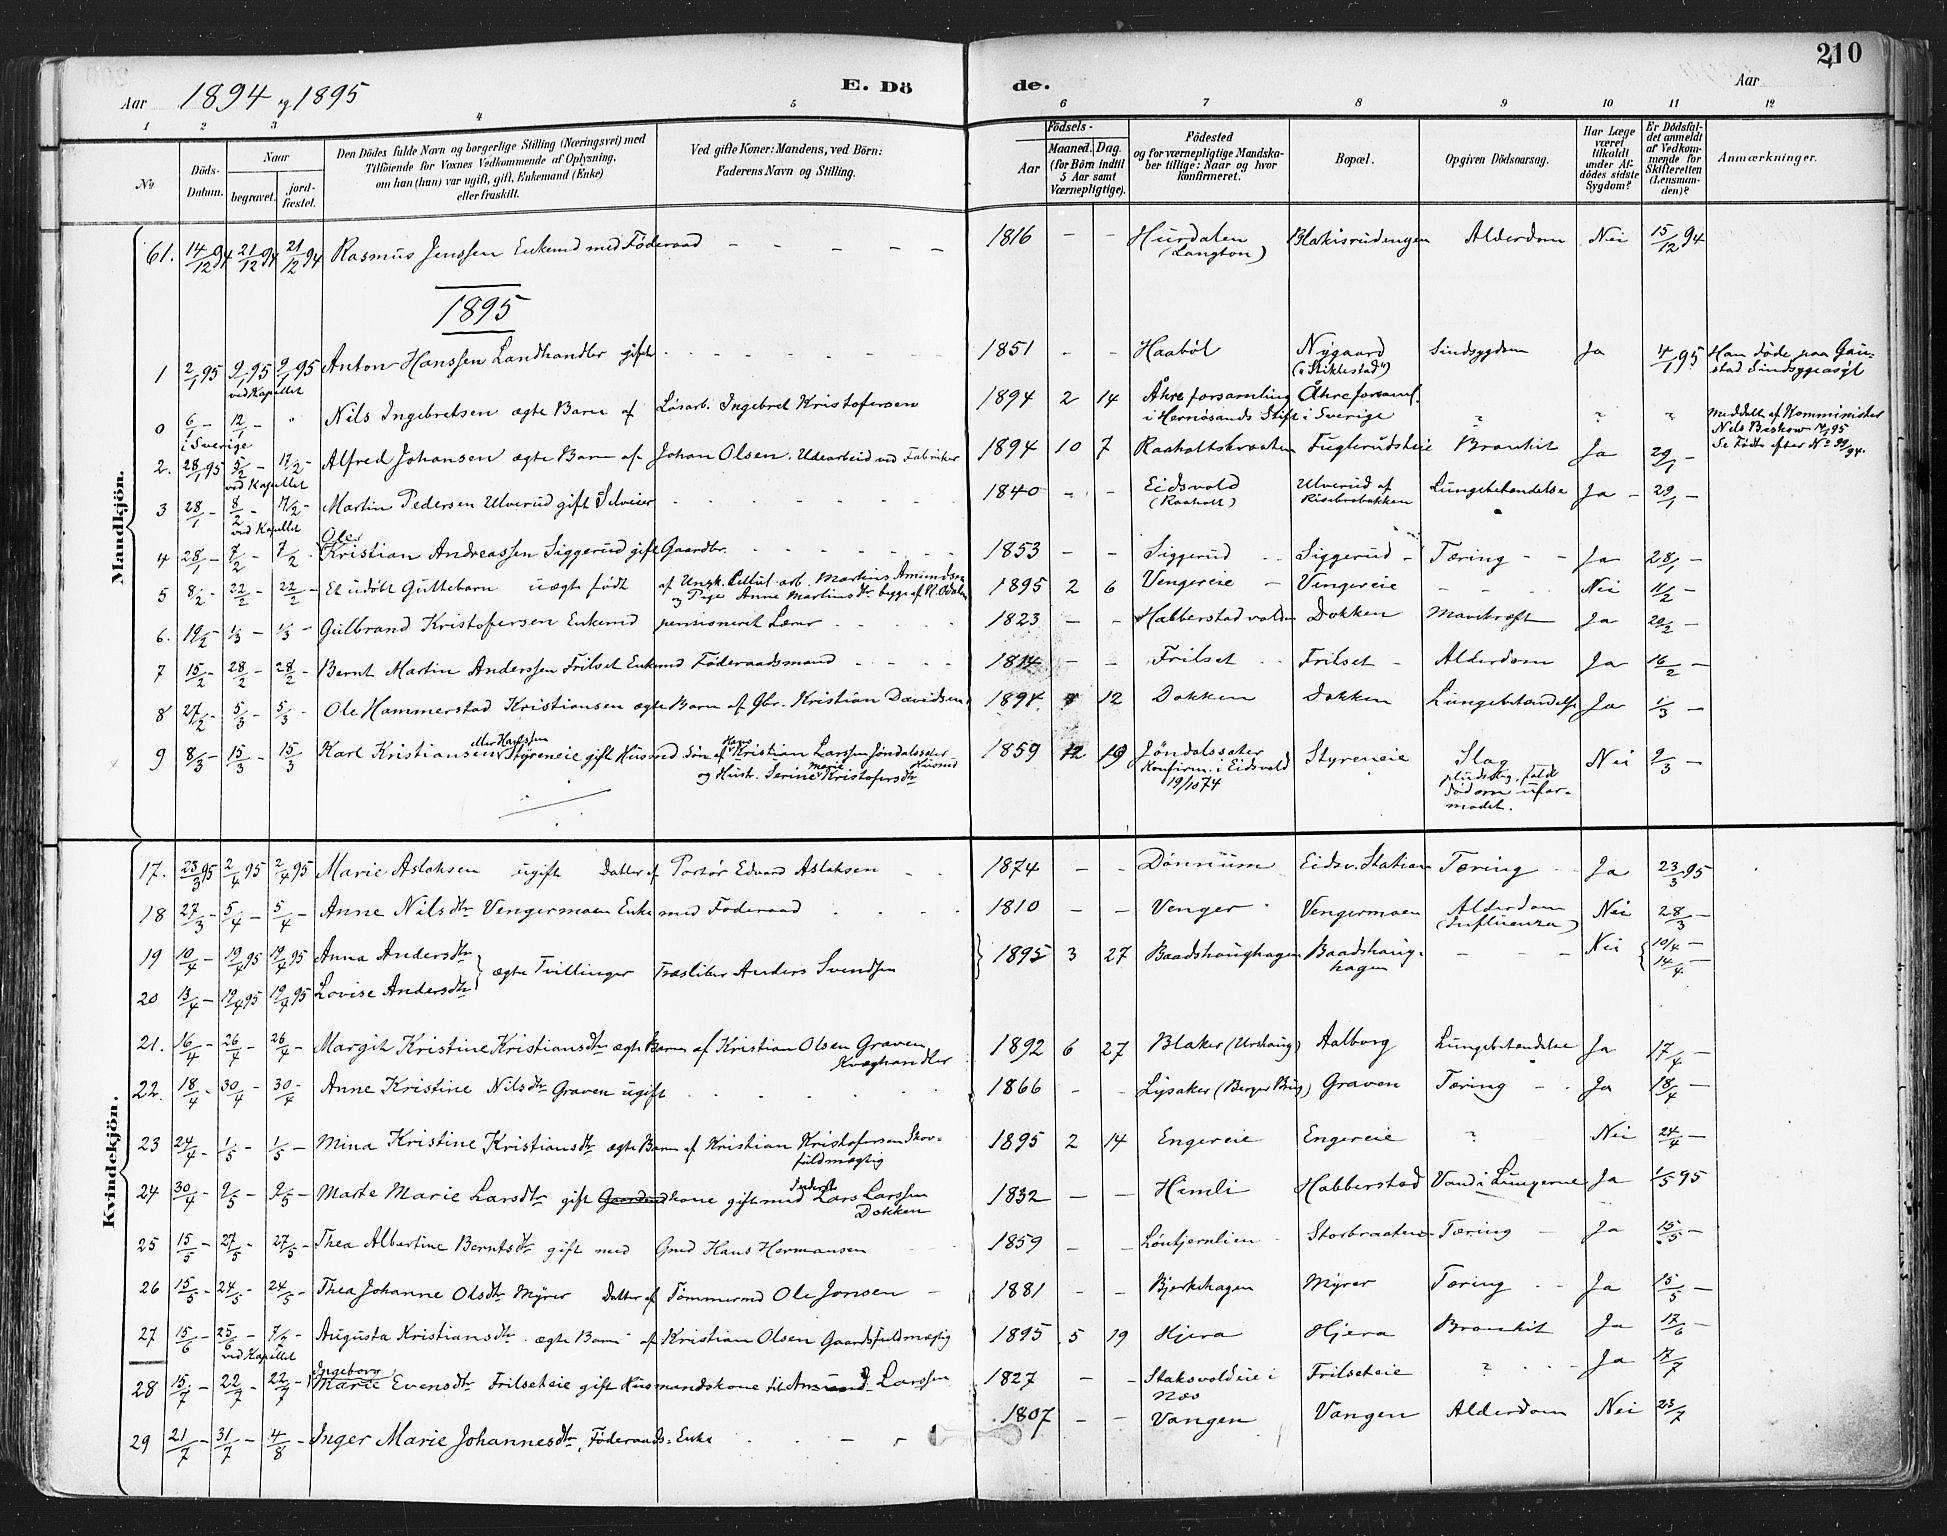 210
Aar 1894 og 1895 E. Dö de. Aar
1 2 3 4 5 6 7 8 9 10 11 12
№
Döds-Datum.
Naar begravet. jord-fæstet.
Den Dödes fulde Navn og borgerlige Stilling (Næringsvei) med
Tilföiende for Voxnes Vedkommende af Oplysning,
om han (hun) var ugift, gift, Enkemand (Enke)
eller fraskilt.
Ved gifte Koner: Mandens, ved Börn:
Faderens Navn og Stilling.
Födsels-
Aar
Maaned. Dag.
(for Börn indtil
5 Aar samt
Værnepligtige).
Födested
og for værnepligtige Mandska-
ber tillige: Naar og hvor
konfirmeret.
Bopæl.
Opgiven Dödsaarsag.
Har Læge
været
tilkaldt
under Af-
dödes sidste
Sygdom?
Er Dödsfal-
det anmeldt
af Vedkom-
mende for
Skifteretten
(Lensman-
den)?
Anmærkninger.
Mandkjön.
61. 14/12 94 21/12 94 21/12 94 Rasmus Jenssen Enkemd med Föderaad - - - - - 1816 - - Hurdalen (Langton) Blakisrudengen Alderdom Nei 15/12 94
1895
1 2/1 95 9/1 95 9/1 95 Anton Hanssen Landhandler gift 1851 - - Haaböl Nygaard ("Stiklestad") Sindsygdom Ja 4/1 95 Han döde paa Gau-
ved Kapellet stad Sindsygeasyl
0 6/1 - 12/1 - " Nils Ingebretsen ægte Barn af Lösarb. Ingebret Kristofersen 1894 2 14 Åhre forsamling Åhre forsaml. ? ? ? Meddelt af Komminister
i Sverige i Hernösands Stift i Sverige Nils Biskow 14/1 95
2. 28/1 95 5/2 - 17/2 - Alfred Johansen ægte Barn af Johan Olsen. Udearbeid ved Fabriker 1894 10 7 Raaholtsbraaten Fuglerudsteie Bronkit Ja 29/1 - Se Födte efter No 99/94.
ved Kapellet
3 28/1 - 8/2 - 17/2 - Martin Pedersen Ulverud gift Selveier 1840 - - Eidsvold (Raaholt) Ulverud af Risebrobakken Lungebetændelse Ja - 29/1 -
ved Kapellet
4 28/1 - 7/2 - 7/2 - Ole Kristian Andreassen Siggerud gift Gaardbr. 1853 - - Siggerud Siggerud - Tæring - - Ja 28/1 -
5 8/2 - 22/2 - 22/2 - Et udöbt Guttebarn uægte födt af Ungk. arb. Martins Amundsen 1895 2 6 Vengereie - Vengereie - - Nei 11/2 -
og Pige Anne Martinusdtr begge af N. Odalen
6. 19/2 - 1/3 - 1/3 - Gulbrand Kristofersen Enkemd pensioneret Lærer 1823 - - Habberstadvolden Dokken Mavekræft Ja 20/2 -
7 15/2 - 28/2 - 28/2 - Bernt Martin Anderssen Frilset Enkemd Föderaadsmand 1814 - - Frilset Frilset - Alderdom Ja 16/2 -
8 27/2 - 5/3 - 5/3 - Ole Hammerstad Kristiansen ægte Barn af Gbr. Kristian Davidsen 1894 12 Dokken Dokken Lungebetændelse Ja 1/3 -
9 8/3 - 15/3 - 15/3 Karl Kristiansen eller Karlssen Styreneie gift Husmd Sön af Hans Kristian Larssen Jöndalssæter Husmd 1859 12 19 Jöndalssæter Styreneie Slag Nei 9/3 -
og Hustr. Serine Marie Kristofersdtr Konfirm. i Eidsvold 19/10 74 pludselig faldt död om ufor-
modet.
Kvindekjön.
17. 23/3 95 2/4 95 2/4 95 Marie Aslaksen ugift Datter af Portör Edvard Aslaksen 1874 - - Dönnum Eidsv. Station Tæring Ja 23/3 95
18 27/3 - 5/4 - 5/4 - Anne Nilsdtr Vengermoen Enke med Föderaad 1810 - - Venger Vengermoen Alderdom (Influenza) Nei 28/3 -
19 10/4 - 19/4 95 19/4 95 Anna Andersdtr } ægte Tvillinger Træsliber Anders Svendsen } 1895 3 27 Baadshaughagen Baadshaug-hagen - - - Nei { 10/4 -
20 13/4 - 19/4 95 19/4 95 Lovise Andersdtr 14/4 -
21. 16/4 - 26/4 - 26/4 - Margit Kristine Kristiansdtr ægte Barn af Kristian Olsen Graven Kvæghandler 1892 6 27 Blaker (Urskoug) Aalborg Lungebetændelse Ja 17/4 -
22. 18/4 - 30/4 - 30/4 - Anne Kristine Nilsdtr Graven ugift 1866 - - Lysaker (Berger Brug) Graven Tæring - Ja 18/4 -
23 24/4 - 1/5 - 1/5 - Mina Kristine Kristiansdtr ægte Barn af Kristian Kristofersen Skov-fuldmægtig 1895 2 14 Engereie Engereie ? Nei 24/4 -
24 30/4 - 9/5 - 9/5 - Marte Marie Larsdtr gift Gaardmdskone gift med Lars Larssen Dokken 1832 - - Himli Habberstad Vand i Lungerne Ja 1/5 95
25 15/5 - 27/5 - 27/5 - Thea Albertine Berntsdtr gift med Gmd Hans Hermansen 1859 - - Löntjernlien Storbraaten Tæring - Ja 15/5 -
26 15/5 - 24/5 - 24/5 - Thea Johanne Olsdtr Myrer Datter af Tömmermd Ole Jonsen - 1881 - - Bjerkehagen Myrer Tæring Ja 15/5 -
27 15/6 - 25/6 - 7/7 - Augusta Kristiansdtr ægte Barn af Kristian Olsen Gaardsfuldmægtig 1895 5 19 Hjera Hjera Bronkit Ja 17/6 -
ved Kapellet
28 15/7 - 22/7 - 22/7 - Ingeborg Marie Evensdtr Frilseteie gift Husmandskone til Amund Larssen 1827 - - Staksvoldeie i Næs Frilseteie ? Ja 17/7
29 21/7 - 31/7 - 4/8 Inger Marie Johannesdtr, Föderaads-Enke - - 1807 - - Vangen Vangen Alderdom Nei 23/7